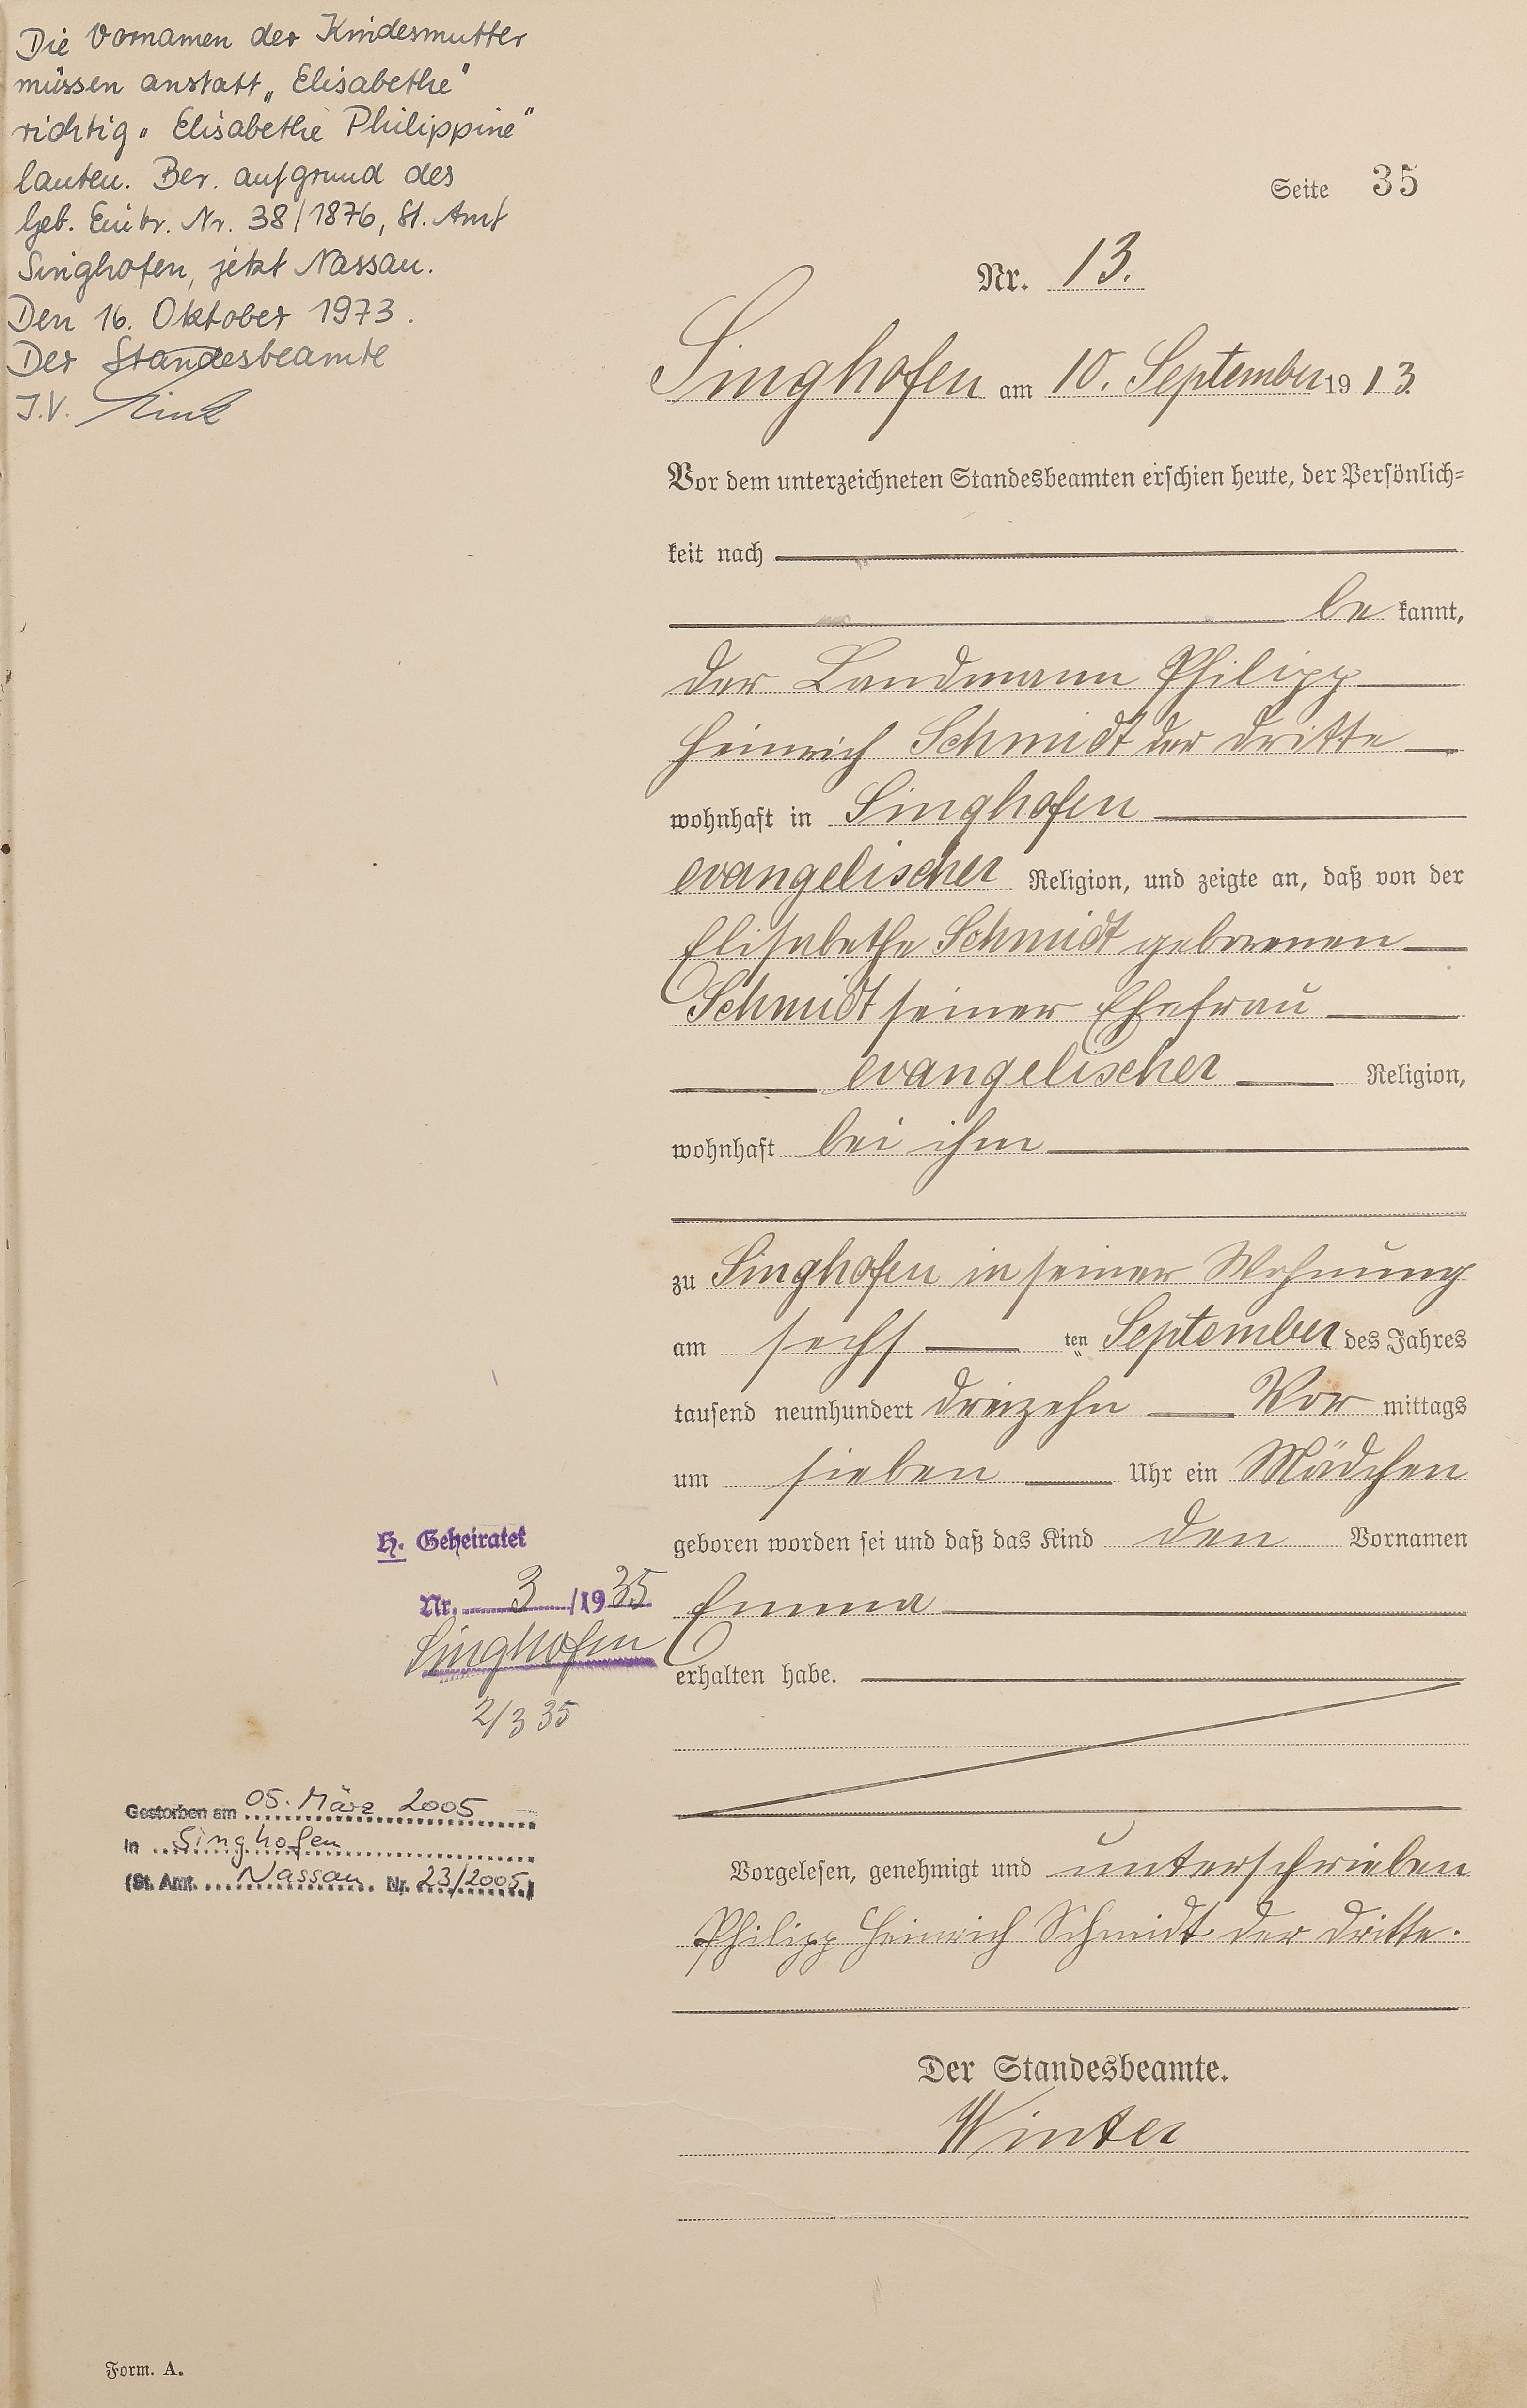 Die Vornamen der Kindesmutter
müssen anstatt „Elisabethe"
richtig „Elisabethe Philippine"
lauten. Ber. aufgrund des
Geb. Eintr. Nr. 38/1876, St. Amt
Singhofen, jetzt Nassau.
Den 16. Oktober 1973.
Der Standesbeamte
I.V.
Seite 35
Nr. 13.
Singhofen am 10. September 1913.
Vor dem unterzeichneten Standesbeamten erschien heute, der Persönlich=
keit nach
be kannt,
der Landmann Philipp
Heinrich Schmidt der dritte
wohnhaft in Singhofen
evangelischer Religion, und zeigte an, daß von der
Elisabethe Schmidt geborenen
Schmidt seiner Ehefrau
evangelischer Religion,
wohnhaft bei ihm
zu Singhofen in seiner Wohnung
am sechs ten September des Jahres
tausend neunhundert dreizehn Vor mittags
um sieben Uhr ein Mädchen
geboren worden sei und daß das Kind den Vornamen
Emma
erhalten habe.
H. Geheiratet
Nr. 3/1935
Singhofen
2/3 35
Gestorben am 05. März 2005
in Singhofen
(St. Amt. Nassau Nr. 23/2005)
Vorgelesen, genehmigt und unterschrieben
Philipp Heinrich Schmidt der dritte.
Der Standesbeamte.
Winter
Form. A.